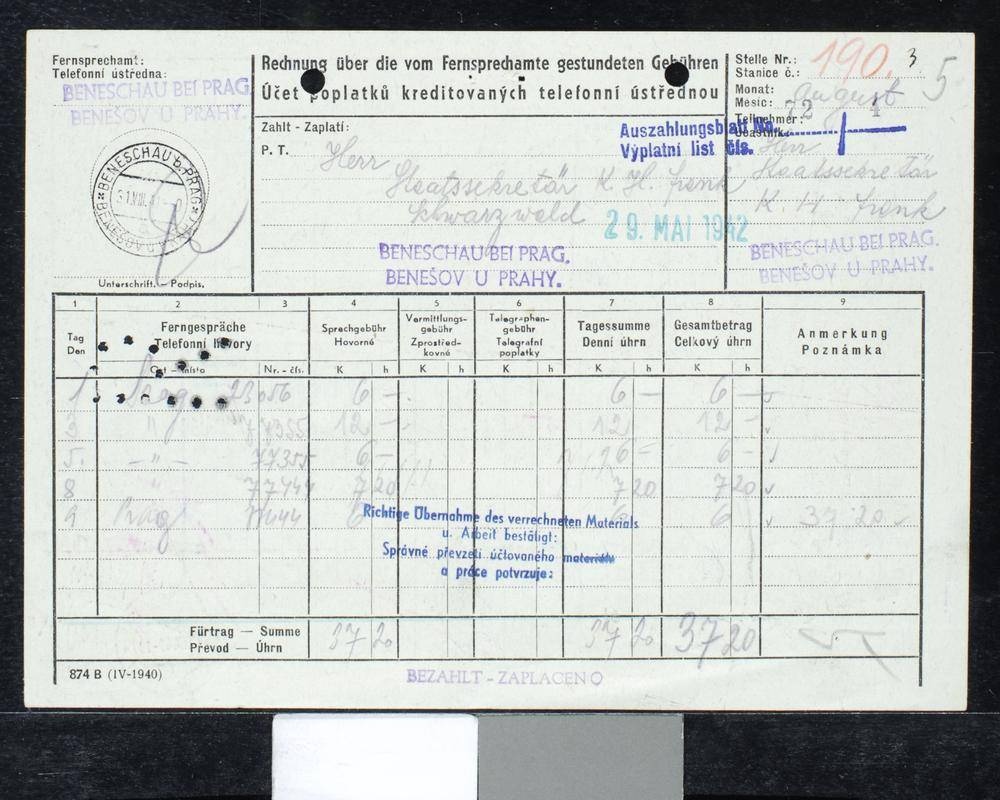 Fernsprechamt:
Telefonní ústředna:
BENESCHAU BEI PRAG.
BENEŠOV U PRAHY.
BENESCHAU b. PRAG
BENEŠOV U PRAHY
Unterschrift. - Podpis.
Rechnung über die vom Fernsprechamte gestundeten Gebühren
Účet poplatků kreditovaných telefonní ústřednou
Zahlt - Zaplatí:
P. T.
Herr
Staatssekretär K. H. Frank
Schwarzwald
Auszahlungsblatt No.
Výplatní list čís.
29. MAI 1942
BENESCHAU BEI PRAG.
BENEŠOV U PRAHY.
Stelle Nr.:
Stanice č.: 190. 3
5
Monat:
Měsíc: August
72 4
Teilnehmer:
Účastník:
Herr
Staatssekretär
K. H. Frank
BENESCHAU BEI PRAG.
BENEŠOV U PRAHY.
1 2 3 4 5 6 7 8 9
Tag
Den
Ferngespräche
Telefonní hovory
Ort - místo Nr. - čís.
Sprechgebühr
Hovorné
Vermittlungs-
gebühr
Zprostřed-
kovné
Telegraphen-
gebühr
Telegrafní
poplatky
Tagessumme
Denní úhrn
Gesamtbetrag
Celkový úhrn
Anmerkung
Poznámka
K h K h K h K h K h
1 Prag 23056 6 — 6 — 6 —
3 " 77355 12 — 12 — 12 —
5. — " — 77355 6 — 6 — 6 —
8 " 77444 7 20 7 20 7 20
9 Prag 77444 6 6 6 37 20
Richtige Übernahme des verrechneten Materials
u. Arbeit bestätigt:
Správné převzetí účtovaného materiálu
a práce potvrzuje:
Fürtrag — Summe
Převod — Úhrn
37 20 37 20 37 20
874 B (IV-1940)
BEZAHLT - ZAPLACENO